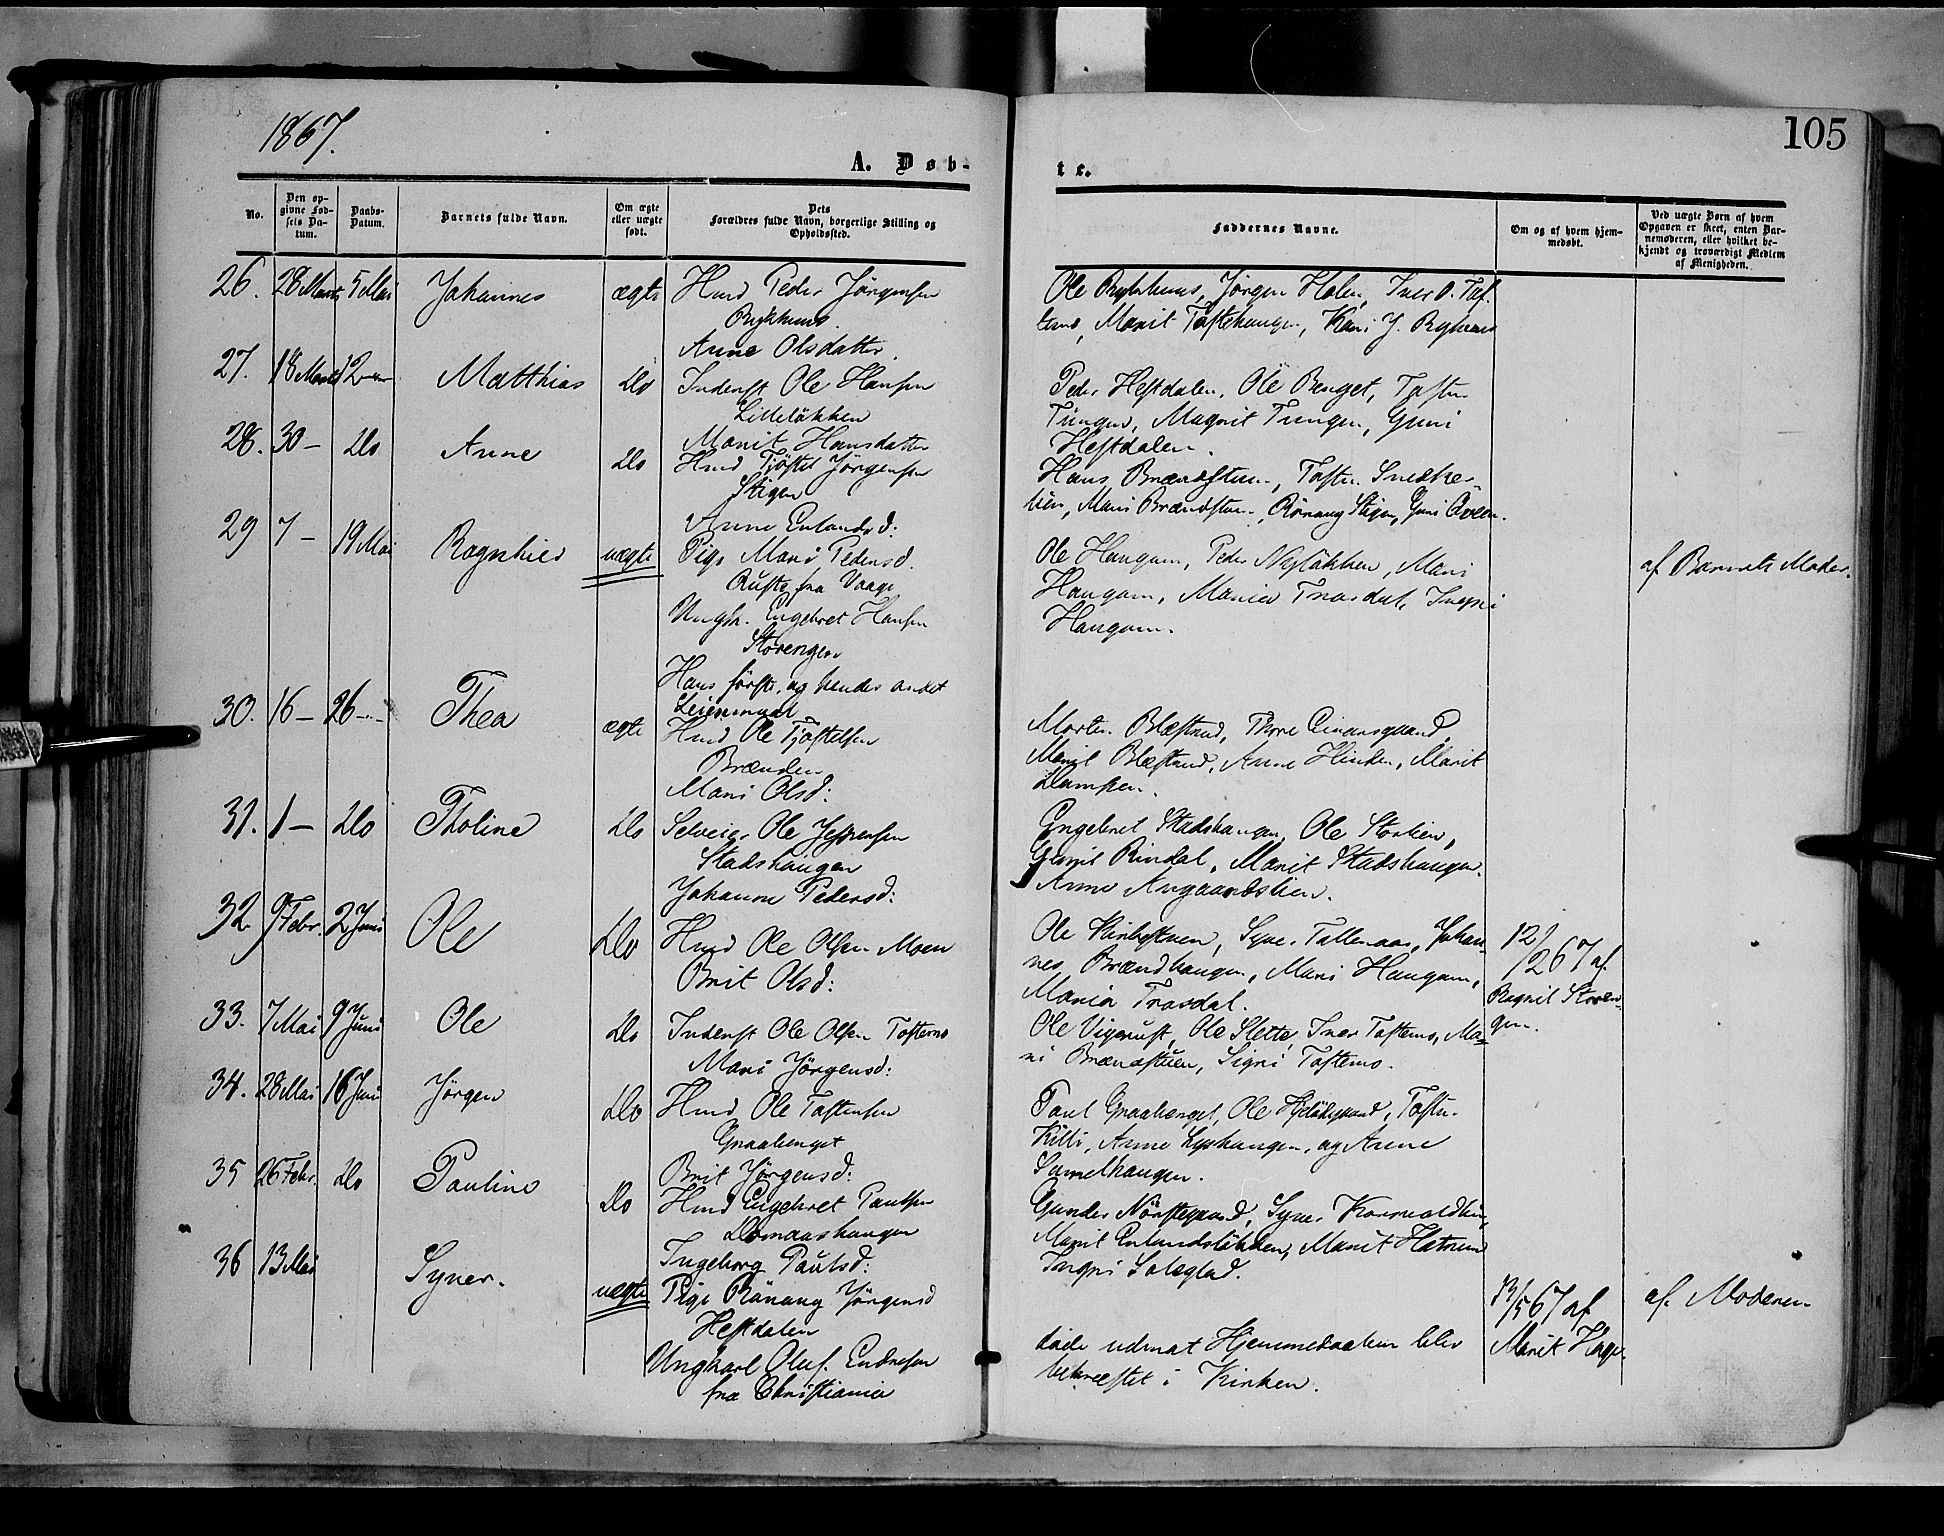 1867.
105
A. Døb-
te.
No.
Den op-
givne Fød-
sels Da-
tum.
Daabs-
Datum.
Barnets fulde Navn.
Om ægte
eller uægte
født.
Dets
Forældres fulde Navn, borgerlige Stilling og
Opholdssted.
Faddernes Navne.
Om og af hvem hjem-
medøbt.
Ved uægte Børn af hvem
Opgaven er skeet, enten Bar-
nemoderen, eller hvilket be-
kjendt og troværdigt Medlem
af Menigheden.
26. 28 Marts 5 Mai Johannes ægte Hmd Peder Jörgensen
Anne Olsdatter.
Ole Jörgen Holen, Iver O. Tof-
Marit Toftehaugen, Kari J.
27. 18 Marts 12 Matthias Do Inderst Ole Hansen
Lillelökken
Marit Hansdatter
Peder Heftdalen, Ole Tosten
Tungen, Magnit Tungen, Guni
Heftdalen.
28. 30 – Do Anne Do Hmd Tjöstel Jörgensen
Stigen
Anne Erlandsd:
Hans Brændstuen, Tosten Snedker-
lien, Mari Brændstuen, Rönaug Stigen, Guni
29 7 – 19 Mai Ragnhild uægte Pige Mari Pedersd.
fra Vaage
Ungk. Engebret Hansen
Storengen
Hans förste, og hendes andet
Leiermaal
Ole Haugom, Peder Nylökken, Mari
Haugom, Maria Trosdal, Ingri
Haugom.
af Barnets Moder.
30. 16 – 26 – Thea ægte Hmd Ole Tjöstelsen
Brænden
Mari Olsd:
Morten Blæstrud, Thore
Marit Blæstrud, Anne Marit
Dampen.
31. 1 – Do Tholine Do Selveier Ole Jeppesen
Stadshaugen
Johanne Pedersd:
Engebret Stadshaugen, Ole Storlien,
Rindal, Marit Stadshaugen.
Anne Angaardslien.
32. 9 Febr. 2 Juni Ole Do Hmd Ole Olsen Moen
Brit Olsd:
Ole Kirkestuen, Syver Johan-
nes Brændhaugen, Mari Haugom,
Maria Trosdal.
12/
/2 67 af
Ragnil Storen-
gen.
33. 7 Mai 9 Juni Ole Do Inderst Ole Olsen Toftemo
Mari Jörgensd:
Ole Vigerust, Ole Slette, Iver Toftemo, Ma-
ri Brændstuen, Sigri Toftemo.
34. 28 Mai 16 Juni Jörgen Do Hmd Ole Tostensen
Graabenget
Brit Jörgensd:
Paul Graabenget, Ole Tosten
Killi, Anne og Anne
35 26 Febr. Do Pauline Do Hmd Engebret Paulsen
Domaashaugen
Ingeborg Paulsd:
Gunder Nörstegaard, Syver
Marit Erlandslökken, Marit
Ingri Soleglad.
36 13 Mai Syver. uægte Pige Rönaug Jörgensd
Heftdalen
Ungkarl Oluf Endresen
fra Christiania
döde Hjemmedaaben blev
bekræftet i Kirken.
13/5 67 af
Marit Hage.
af Moderen